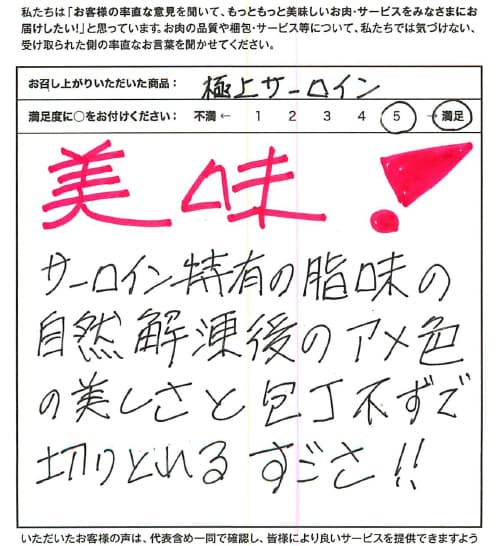 私たちは「お客様の率直な意見を聞いて、もっともっと美味しいお肉・サービスをみなさまにお
届けしたい!」と思っています。お肉の品質や梱包・サービス等について、私たちでは気づけない、
受け取られた側の率直なお言葉を聞かせてください。
お召し上がりいただいた商品: 極上サーロイン
満足度に○をお付けください: 不満 ← 1 2 3 4 5 → 満足
美味!
サーロイン特有の脂味の
自然解凍後のアメ色
の美しさと包丁不ずで
切りとれるすごさ!!
いただいたお客様の声は、代表含め一同で確認し、皆様により良いサービスを提供できますよう